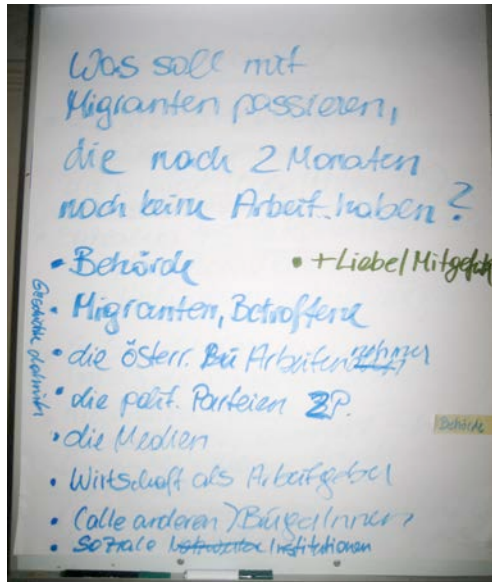 Was soll mit
Migranten passieren,
die nach 2 Monaten
noch keine Arbeit haben?
• Behörde
• + Liebe/Mitgefühl
• Migranten, Betroffene
• die österr. Bü Arbeitnehmer
• die polit. Parteien 2P.
• die Medien
• Wirtschaft als Arbeitgeber
• (alle anderen) BürgerInnen
• Soziale Institutionen
Behörde